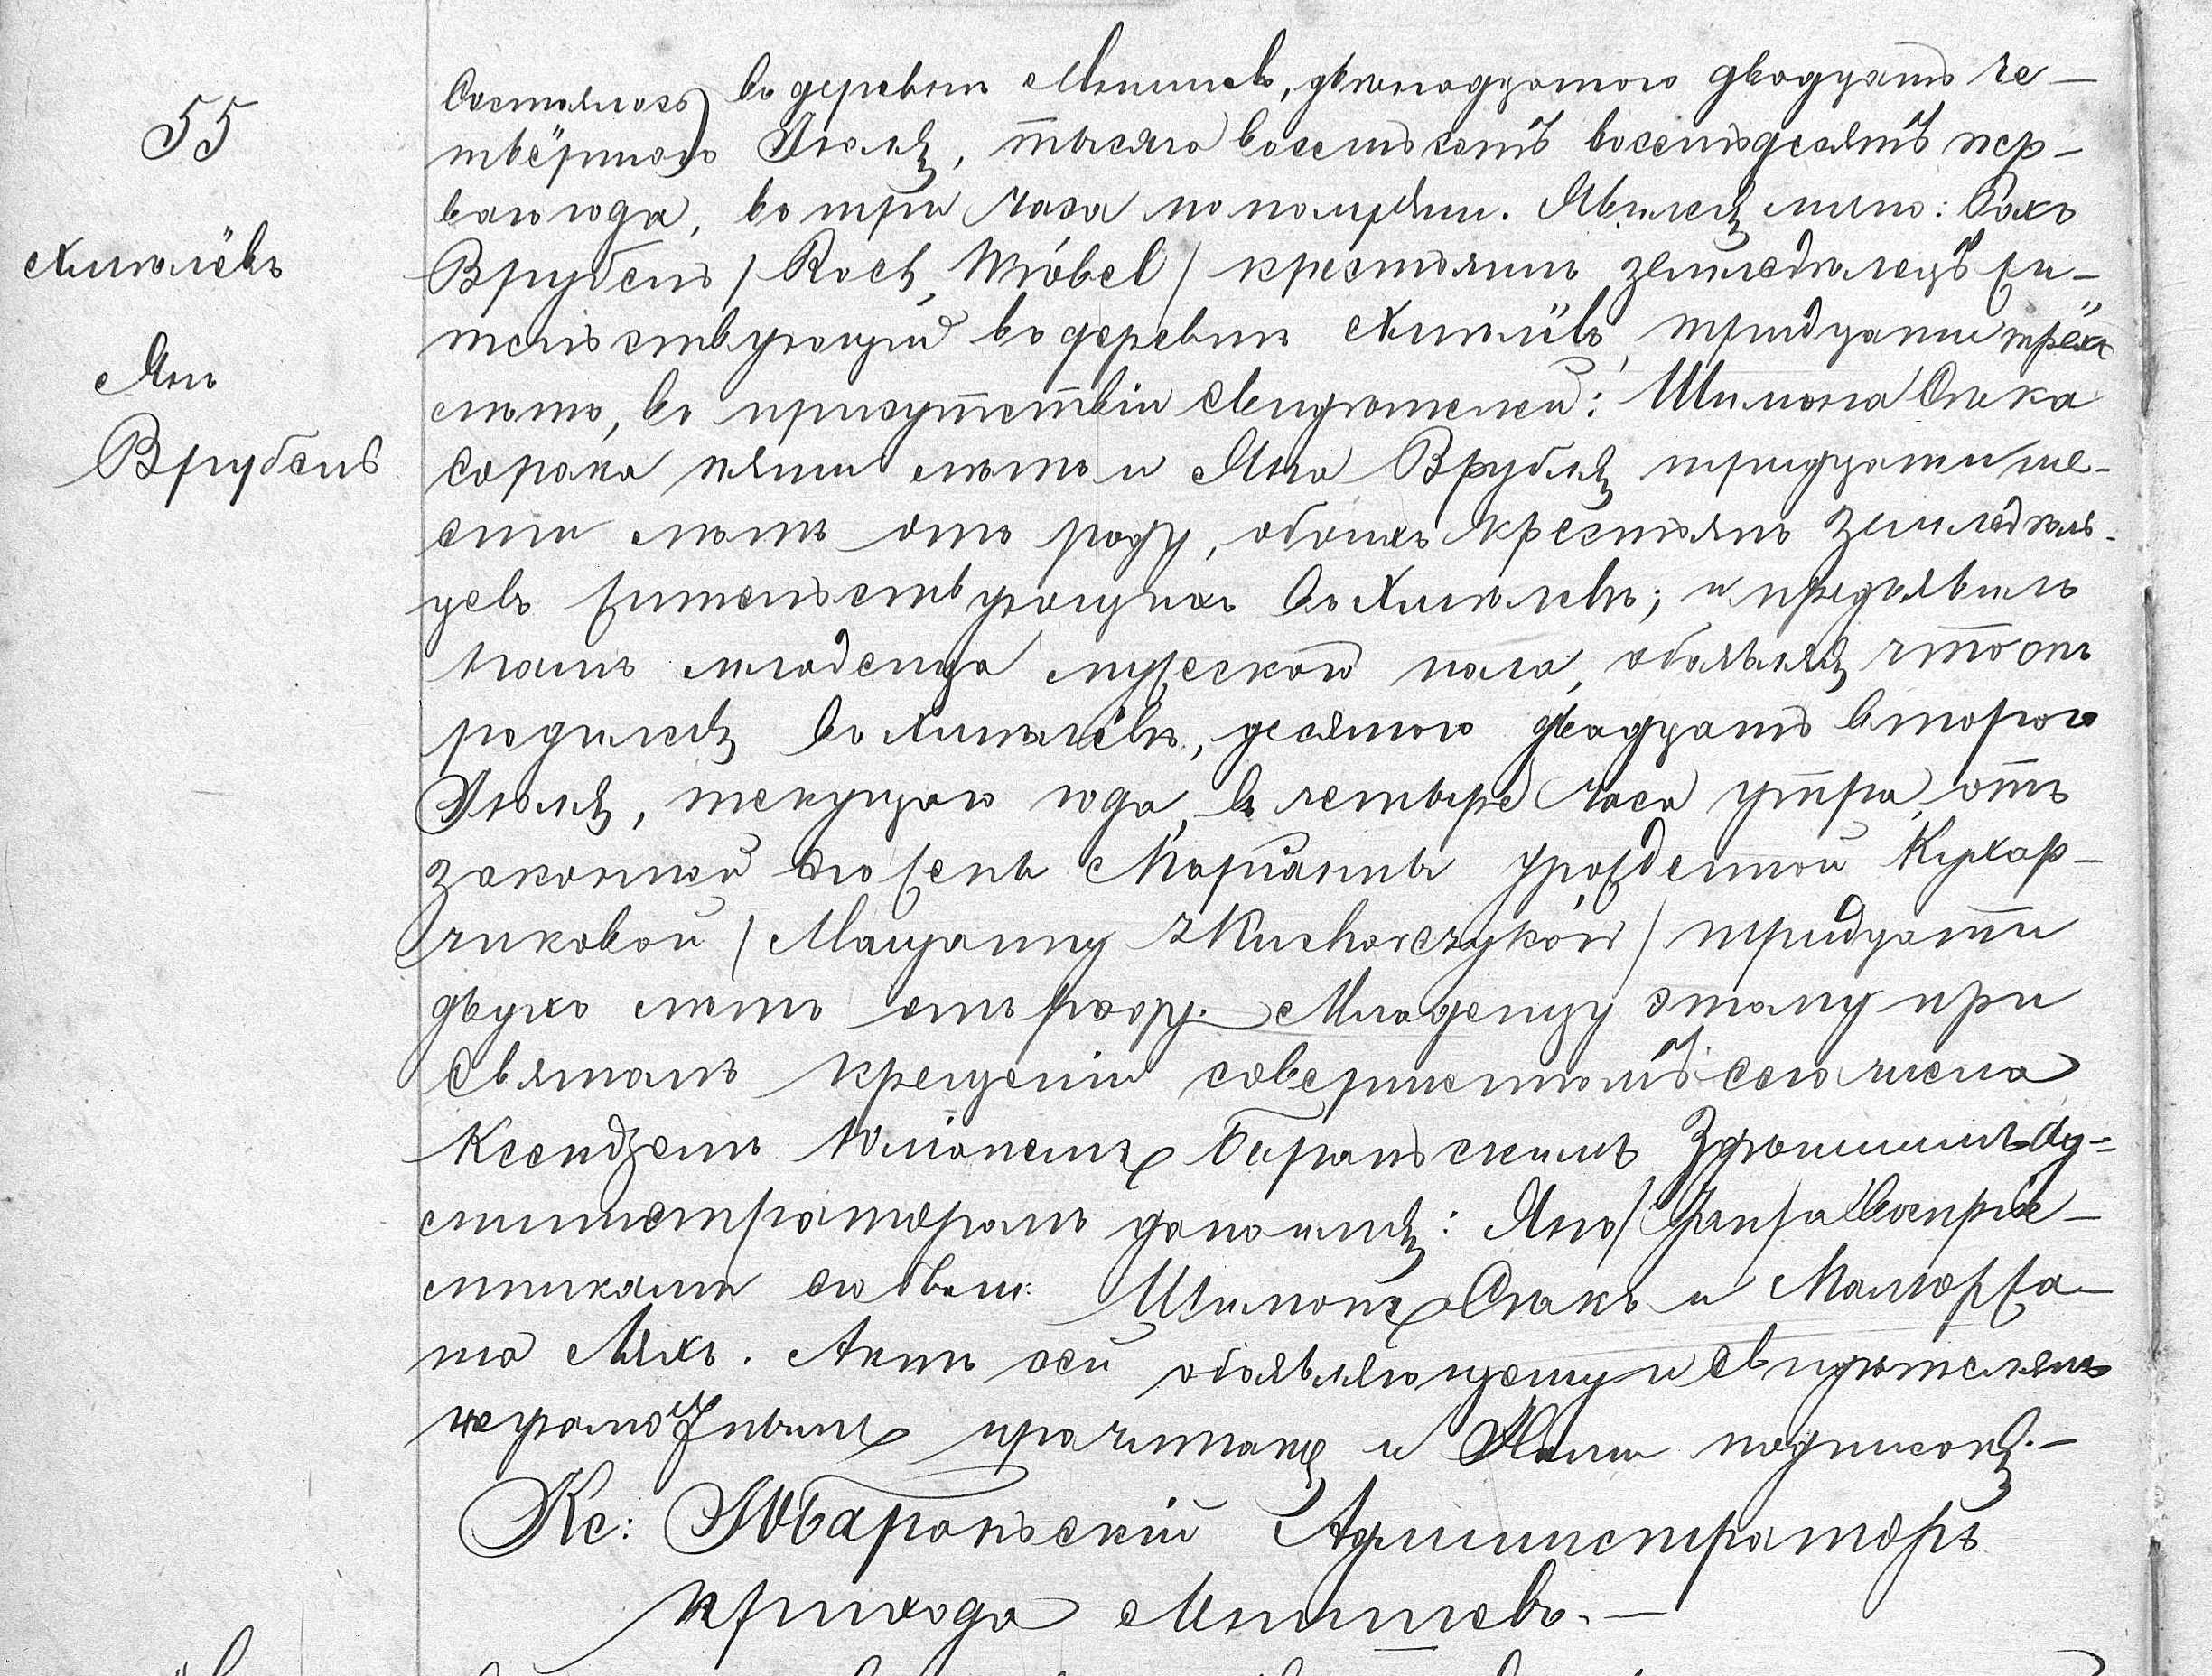 55
Хмѣлёвъ
Янъ
Врубель
Состоялось въ деревнѣ Мнишевъ, двѣнадцатого двадцать че-
твёртого) Іюля, тысяча восемьсотъ восемьдесятъ пер-
ваго года, въ три часа по полудни. Явился лично: Рохъ
Врубель / Roch Wróbel / крестьянинъ земледѣлецъ жи-
тельствующій въ деревнѣ Хмѣлёвъ, тридцати трёхъ
лѣтъ, въ присутствіи свидѣтелей: Шимона Снока
сорока пяти лѣтъ и Яна Врубля тридцати ше-
сти лѣтъ отъ роду, обоихъ крестьянъ земледѣль-
цевъ жительствующихъ въ Хмѣлевѣ; и предъявилъ
намъ младенца мужескаго пола, объявляя что онъ
родился въ Хмѣлёвѣ, десятого двадцать второго
Іюля, текущаго года, въ четыре часа утра, отъ
законной его жены Маріанны урожденной Кухар-
чиковой / Maryanny z Kucharczyków / тридцати
двухъ лѣтъ отъ роду. Младенцу этому при
Святомъ крещеніи совершенномъ сего числа
Ксендземъ Юліаномъ Бараньскимъ Здѣшнимъ Ад-
министраторомъ дано имя: Янъ, а Воспріе-
мниками его были: Шимонъ Снокъ и Малгоржа-
та Ляхъ. Актъ сей объявляющему и свидѣтелямъ
неграмотнымъ прочитанъ и Нами подписанъ.-
Кс: Ю Бараньскій Администраторъ
прихода Мнишевъ.-